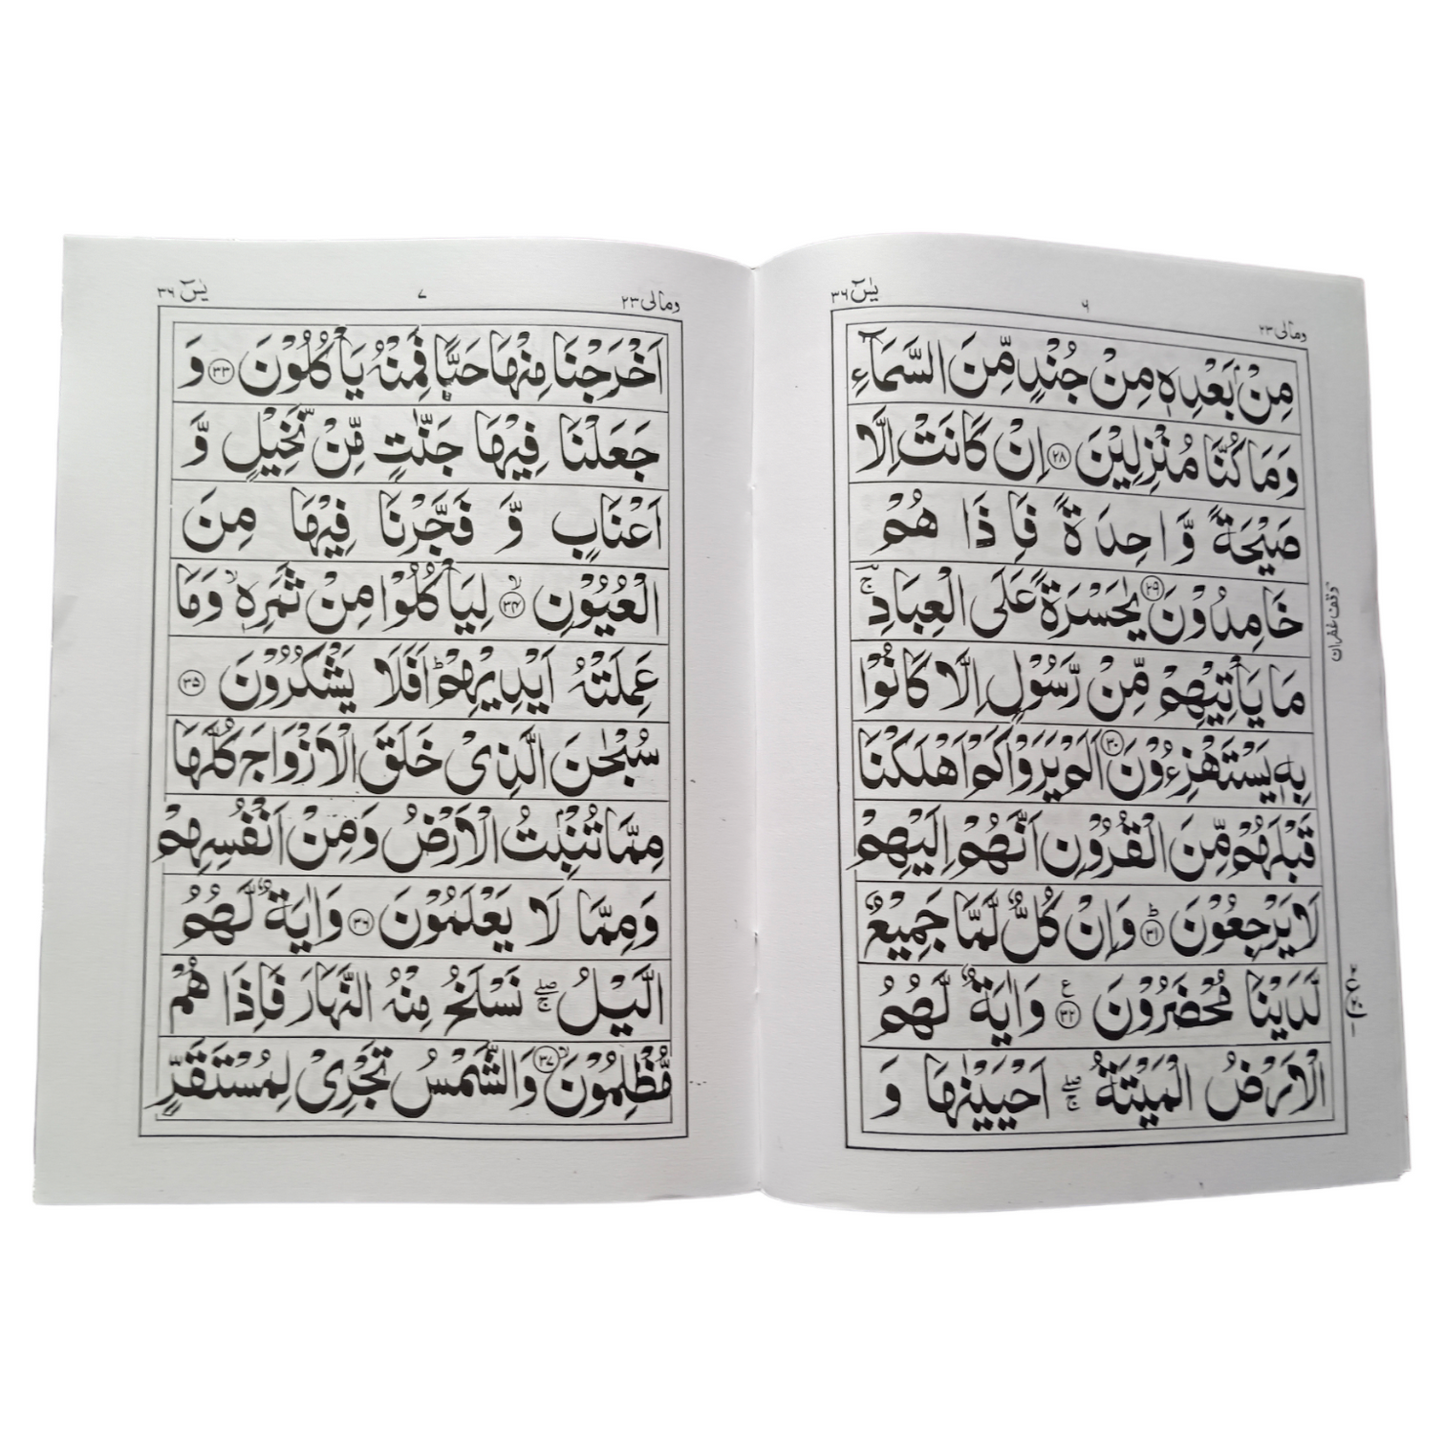 یٰسٓ ۳۶
۶
ومالی ۲۳
مِنْۢ بَعْدِهٖ مِنْ جُنْدٍ مِّنَ السَّمَآءِ
وَمَا كُنَّا مُنْزِلِیْنَ ﴿۲۸﴾ اِنْ كَانَتْ اِلَّا
صَیْحَةً وَّاحِدَةً فَاِذَا هُمْ
خَامِدُوْنَ ﴿۲۹﴾ یٰحَسْرَةً عَلَی الْعِبَادِ ۚؔ
مَا یَاْتِیْهِمْ مِّنْ رَّسُوْلٍ اِلَّا كَانُوْا
بِهٖ یَسْتَهْزِءُوْنَ ﴿۳۰﴾ اَلَمْ یَرَوْا كَمْ اَهْلَكْنَا
قَبْلَهُمْ مِّنَ الْقُرُوْنِ اَنَّهُمْ اِلَیْهِمْ
لَا یَرْجِعُوْنَ ﴿ؕ۳۱﴾ وَاِنْ كُلٌّ لَّمَّا جَمِیْعٌ
لَّدَیْنَا مُحْضَرُوْنَ ﴿۳۲﴾ ع وَاٰیَةٌ لَّهُمُ
الْاَرْضُ الْمَیْتَةُ ۖۚ اَحْیَیْنٰهَا وَ
وقف غفران
یٰسٓ ۳۶
۷
ومالی ۲۳
اَخْرَجْنَا مِنْهَا حَبًّا فَمِنْهُ یَاْكُلُوْنَ ﴿۳۳﴾ وَ
جَعَلْنَا فِیْهَا جَنّٰتٍ مِّنْ نَّخِیْلٍ وَّ
اَعْنَابٍ وَّ فَجَّرْنَا فِیْهَا مِنَ
الْعُیُوْنِ ﴿ۙ۳۴﴾ لِیَاْكُلُوْا مِنْ ثَمَرِهٖ ۙ وَمَا
عَمِلَتْهُ اَیْدِیْهِمْ ؕ اَفَلَا یَشْكُرُوْنَ ﴿۳۵﴾
سُبْحٰنَ الَّذِیْ خَلَقَ الْاَزْوَاجَ كُلَّهَا
مِمَّا تُنْۢبِتُ الْاَرْضُ وَمِنْ اَنْفُسِهِمْ
وَمِمَّا لَا یَعْلَمُوْنَ ﴿۳۶﴾ وَاٰیَةٌ لَّهُمُ
الَّیْلُ ۖۚ نَسْلَخُ مِنْهُ النَّهَارَ فَاِذَا هُمْ
مُّظْلِمُوْنَ ﴿ۙ۳۷﴾ وَالشَّمْسُ تَجْرِیْ لِمُسْتَقَرٍّ